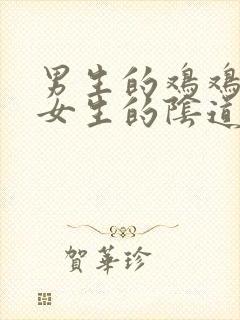 男生的鸡鸡
女生的陰道
賀華珍